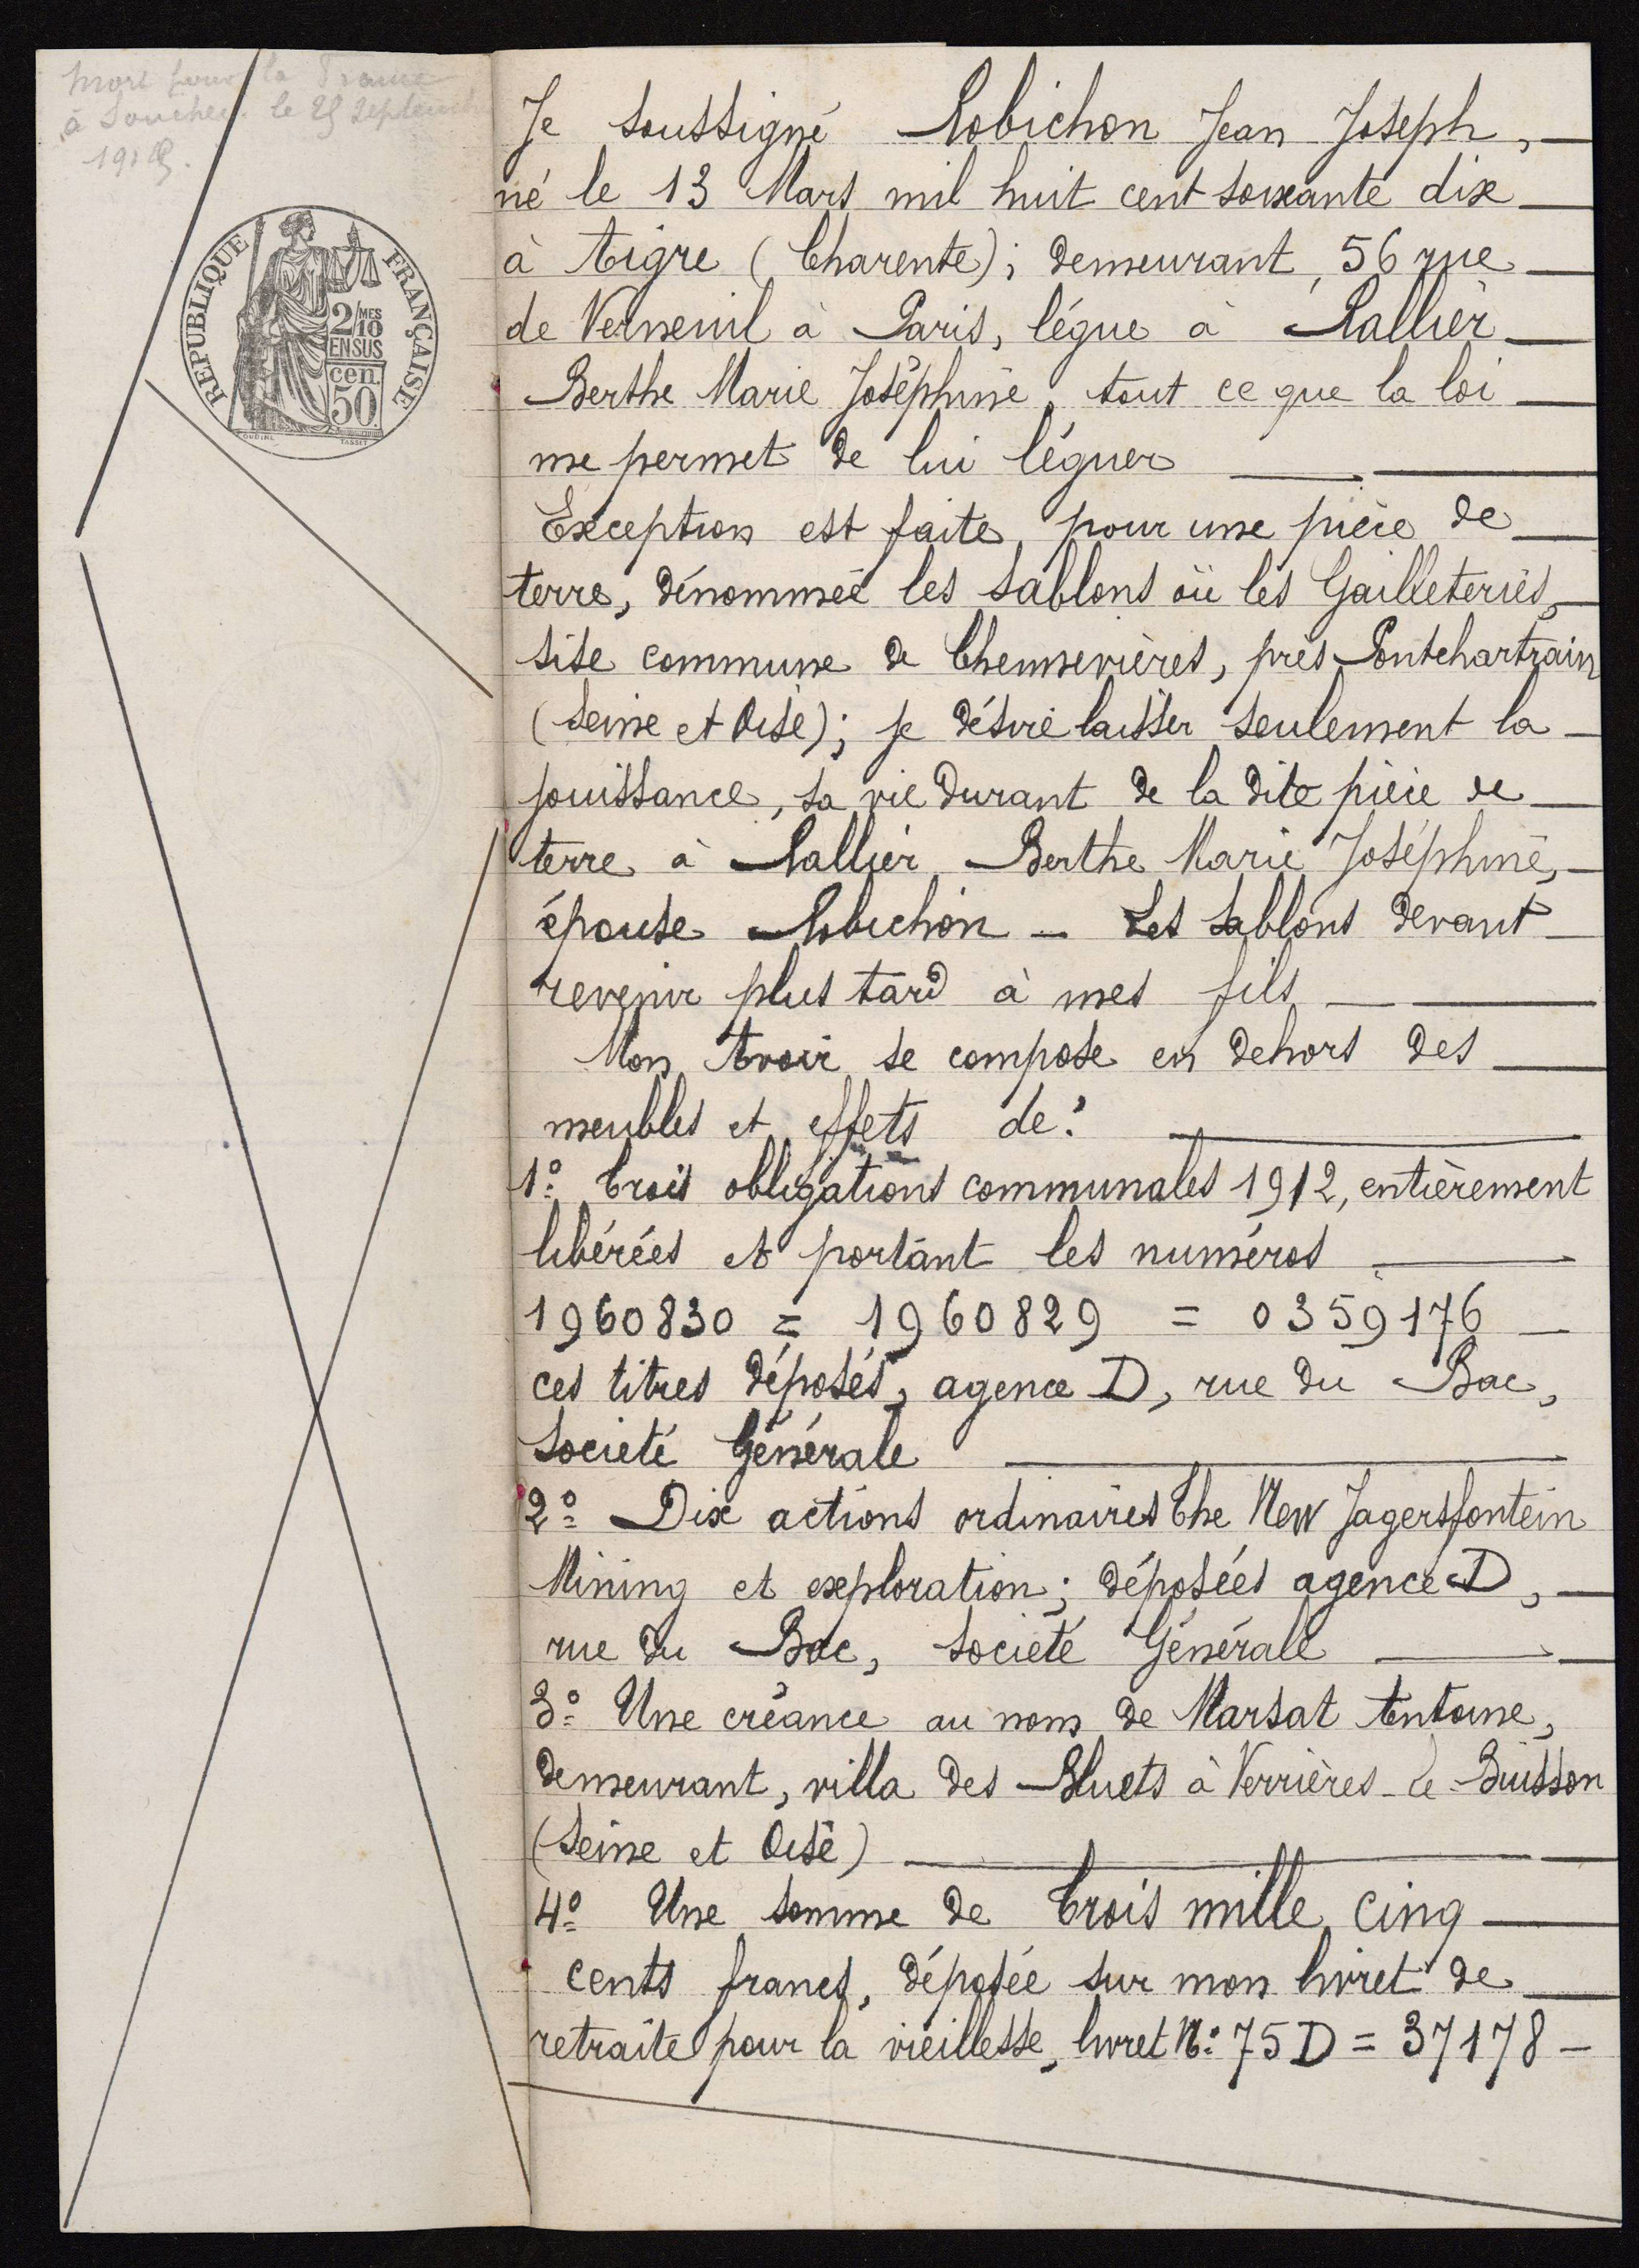 mort pour la France
à Souchez le 25 septembre
1915.
REPUBLIQUE FRANÇAISE
2/10 MES
EN SUS
cen.
50.
OUDINÉ TASSET
Je soussigné Robichon Jean Joseph,
né le 13 Mars mil huit cent soixante dix
à Aigre (Charente); demeurant, 56 rue
de Verneuil à Paris, légue à Rallier
Berthe Marie Joséphine, tout ce que la loi
me permet de lui léguer
Exception est faite, pour une pièce de
terre, dénommée les Sablons où les Gailleteries,
sise commune de Chennevières, près Pontchartrain
(Seine et Oise); je désire laisser seulement la
jouissance, sa vie durant de la dite pièce de
terre à Rallier Berthe Marie Joséphine,
épouse Robichon - Les Sablons devant
revenir plus tard à mes fils
Mon Avoir se compose en dehors des
meubles et effets de:
1º: Trois obligations communales 1912, entièrement
libérées et portant les numéros
1960830 = 1960829 = 0359176
ces titres déposés, agence D, rue du Bac,
Société Générale
2º: Dix actions ordinaires The New Jagersfontein
Mining et exploration; déposées agence D,
rue du Bac, Société Générale
3º: Une créance au nom de Marsat Antoine,
demeurant, villa des Bluets à Verrières-le-Buisson
(Seine et Oise)
4º: Une somme de Trois mille cinq
cents francs, déposée sur mon livret de
retraite pour la vieillesse, livret Nº: 75 D = 37178 -